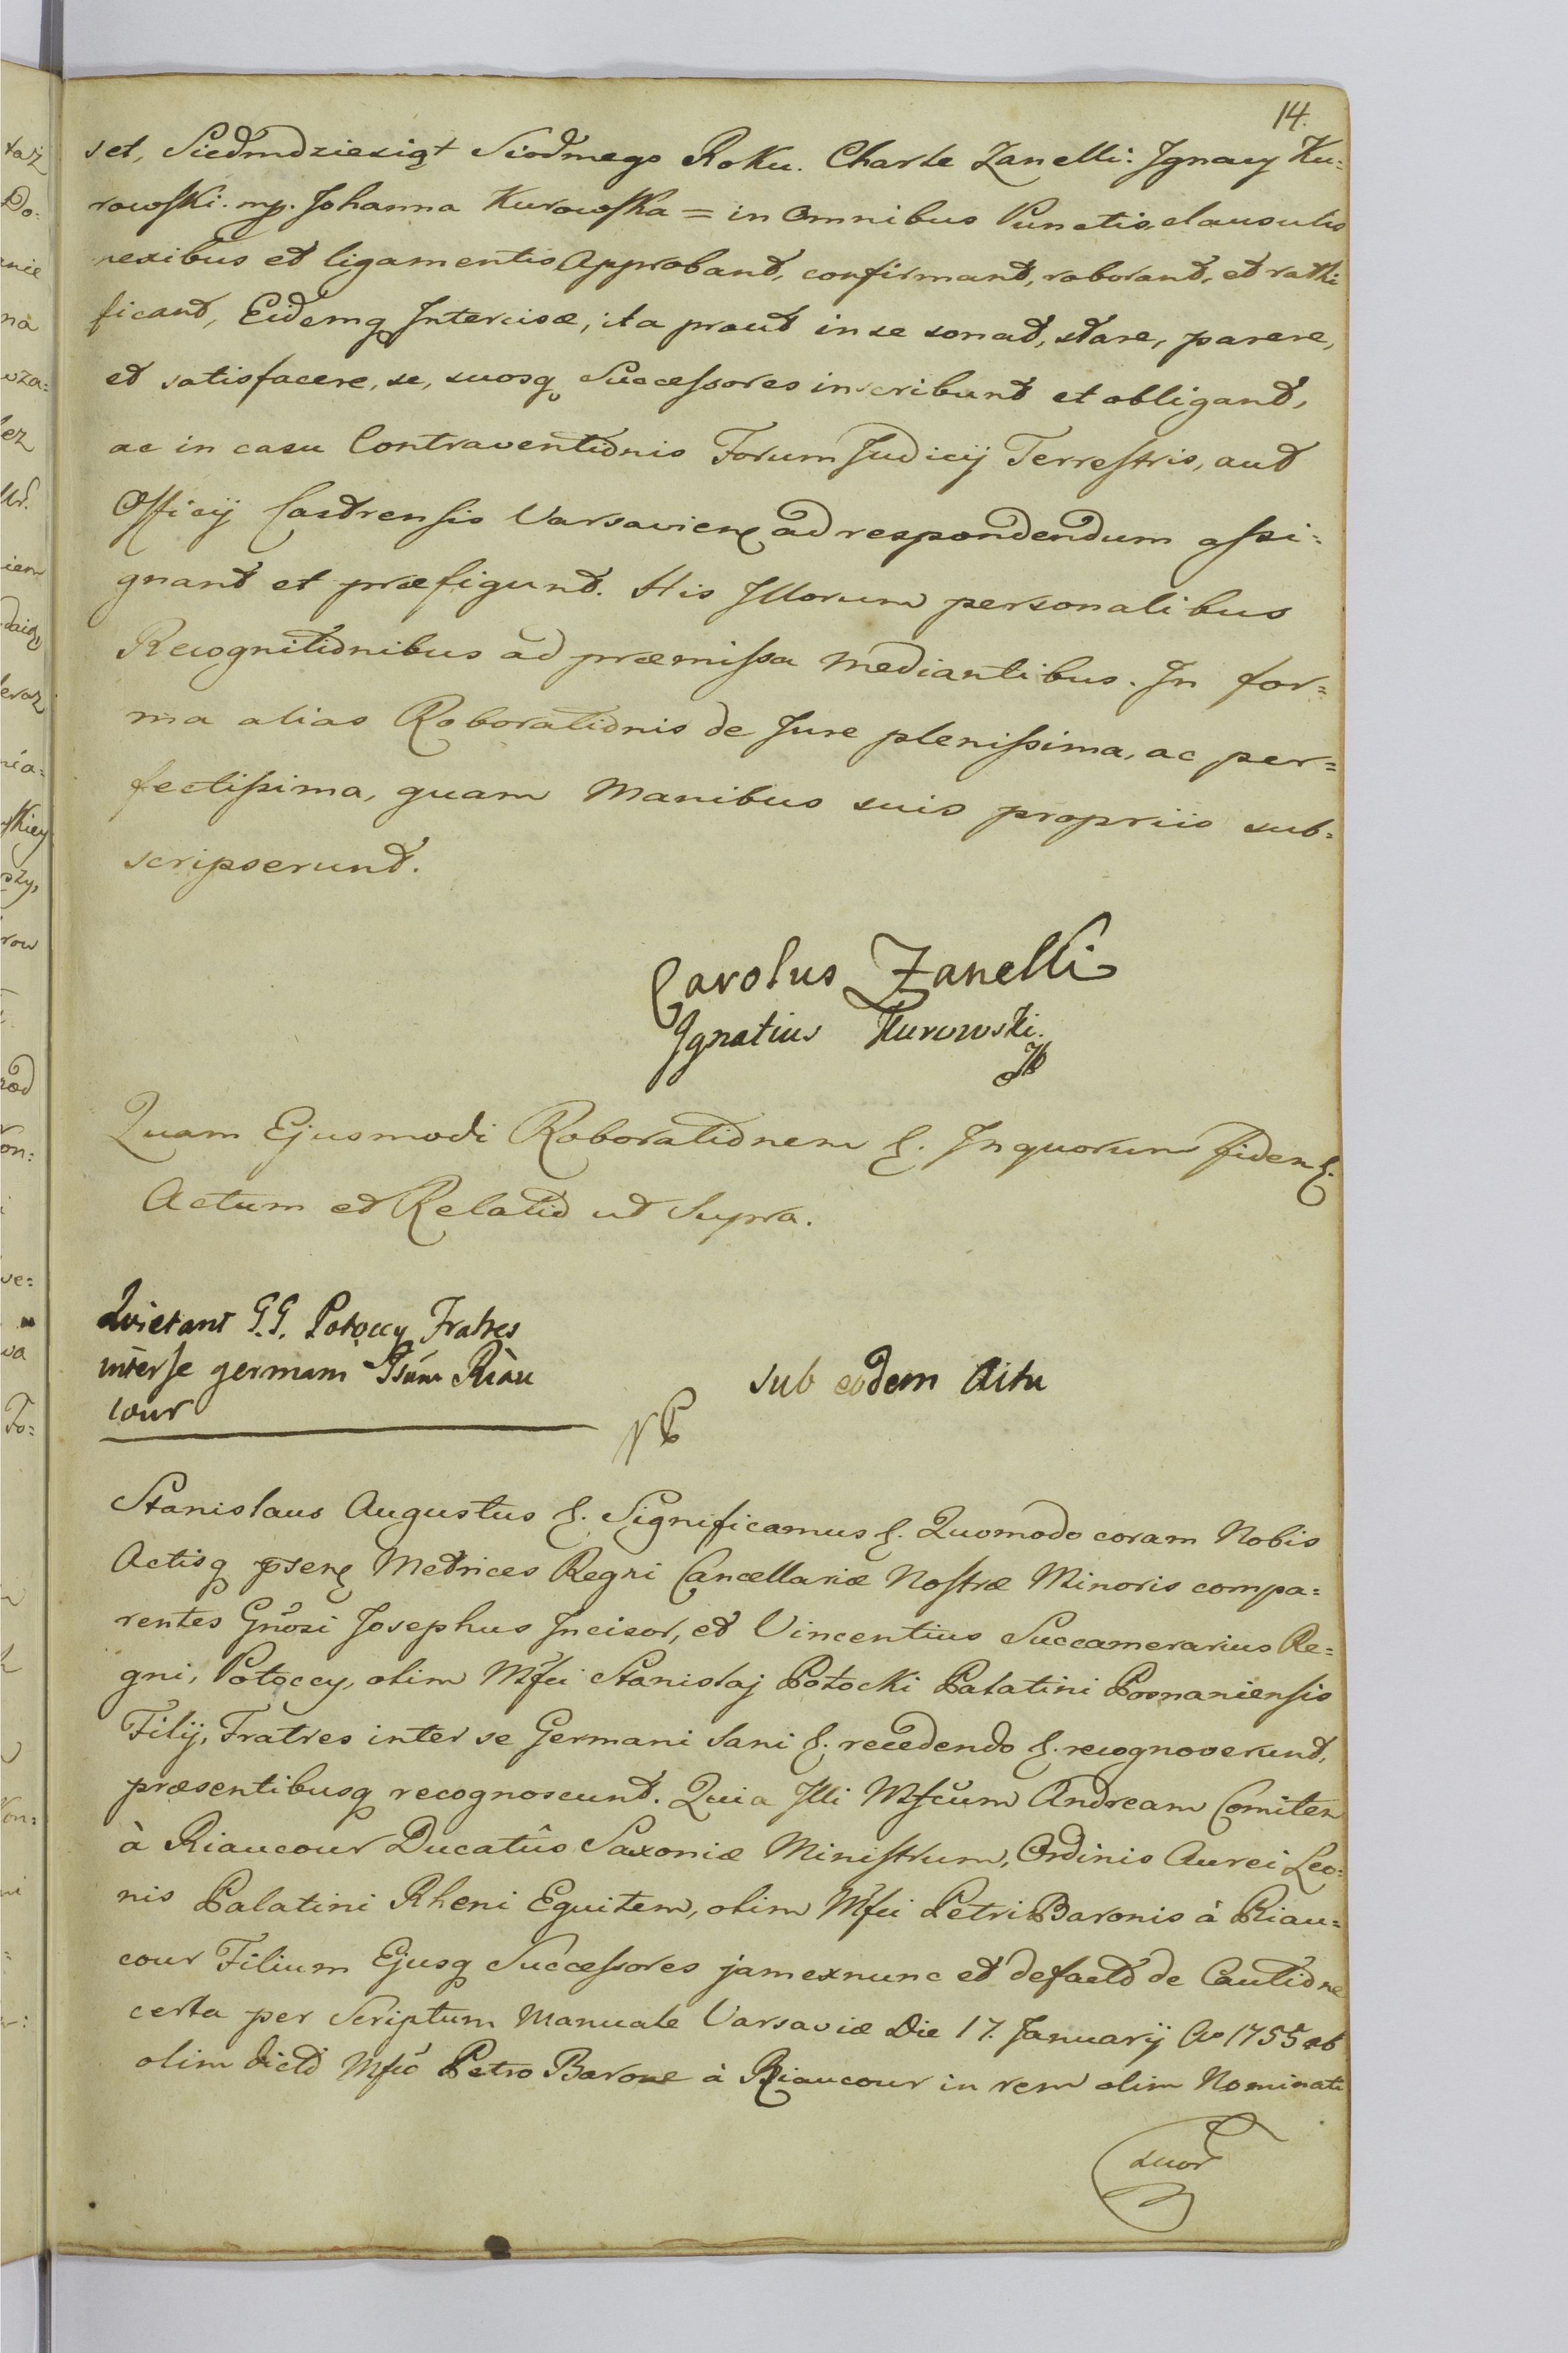 14.
set, Siedmdziesiąt Siodmego Roku. Charle Zanelli: Jgnacy Ku=
rowski. mp. Johanna Kurowska = in Omnibus Punctis, clausulis
nexibus et ligamentis Approbant, confirmant, roborant, et rathi
ficant, Eidemq Intercisæ, ita prout in se sonat, stare, parere,
et satisfacere, se, suosq Successores inscribunt et obligant,
ac in casu Contraventionis Forum Judicij Terrestris, aut
Officij Castrensis Varsavien ad respondendum assi=
gnant et præfigunt. His Jllorum personalibus
Recognitionibus ad præmissa mediantibus. Jn for=
ma alias Roborationis de Jure plenissima, ac per=
fectissima, quam Manibus suis propriis sub=
scripserunt.
Carolus Zanelli
Jgnatius Kurowski.
Quam Ejusmodi Roborationem &. Jn quorum fidem &.
Actum et Relatio ut Supra.
Quietant G.G. Potoccy Fratres
inter se germani Riau
cour
sub eodem Actu
NB
Stanislaus Augustus &. Significamus &. Quomodo coram Nobis
Actisq psen Metrices Regni Cancellariæ Nostræ Minoris compa=
rentes Gnosi Josephus Jncisor, et Vincentius Succamerarius Re=
gni, Potoccy, olim Mfci Stanislaj Potocki Palatini Posnaniensis
Filij, Fratres inter se Germani sani &. recedendo &. recognoverunt,
præsentibusq recognoscunt. Quia Jlli Mfcum Andream Comitem
à Riaucour Ducatûs Saxoniæ Ministrum, Ordinis Aurei Leo=
nis Palatini Rheni Equitem, olim Mfci Petri Baronis à Riau=
cour Filium Ejusq Successores jam exnunc et defacto de Cautione
certa per Scriptum Manuale Varsaviæ Die 17. Januarij Ao 1755 ab
olim dicto Mfco Petro Barone à Riaucour in rem olim Nominati